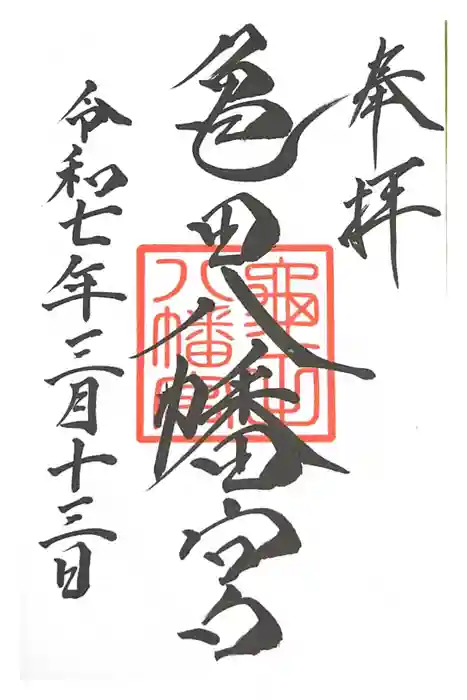 奉拝
亀田八幡宮
亀田
八幡宮
令和七年三月十三日